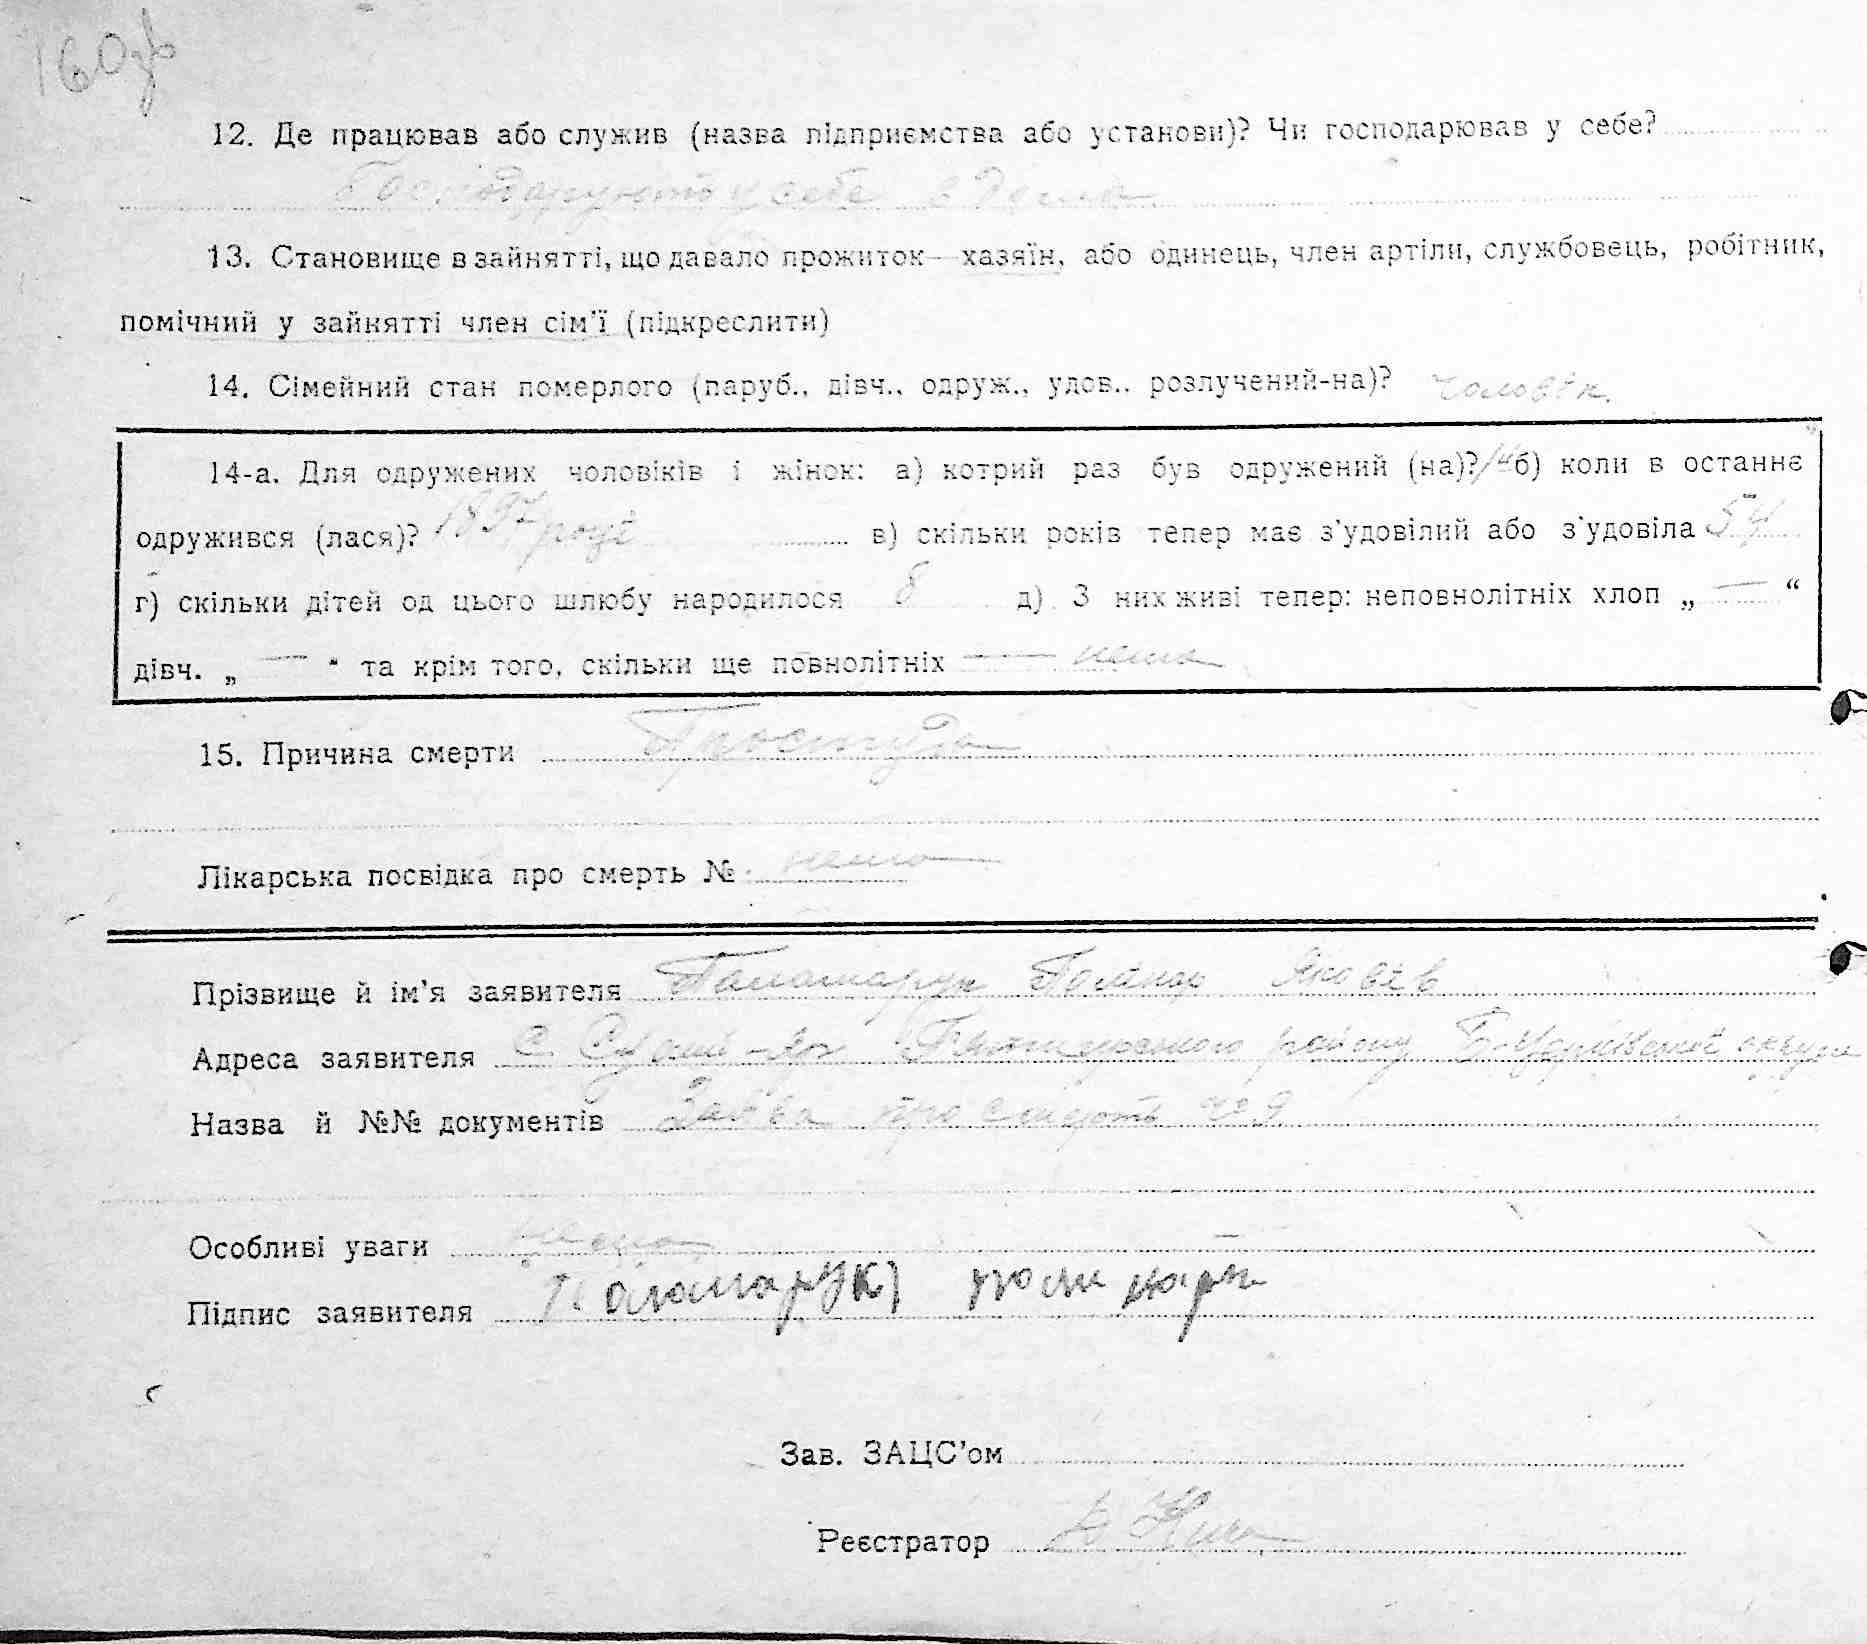 160зв
12. Де працював або служив (назва підприємства або установи)? Чи господарював у себе?
Господарують у себе в дома
13. Становище в зайнятті, що давало прожиток—хазяїн, або одинець, член артіли, службовець, робітник,
помічний у зайнятті член сім'ї (підкреслити)
14. Сімейний стан померлого (паруб., дівч., одруж., удов., розлучений-на)? Чоловік.
14-а. Для одружених чоловіків і жінок: а) котрий раз був одружений (на)? б) коли в останнє
одружився (лася)? 1897 році в) скільки років тепер має з'удовілий або з'удовіла 54
г) скільки дітей од цього шлюбу народилося 8 д) З них живі тепер: неповнолітніх хлоп „ — “
дівч. „ — “ та крім того, скільки ще повнолітніх — нема
15. Причина смерти Простуда
Лікарська посвідка про смерть № нема
Прізвище й ім'я заявителя Паламарук Яковів
Адреса заявителя с. Сухий-Яр району Б-Церківської округи
Назва й №№ документів Заява про смерть № 9
Особливі уваги нема
Підпис заявителя Паламарук
Зав. ЗАЦС'ом
Реєстратор